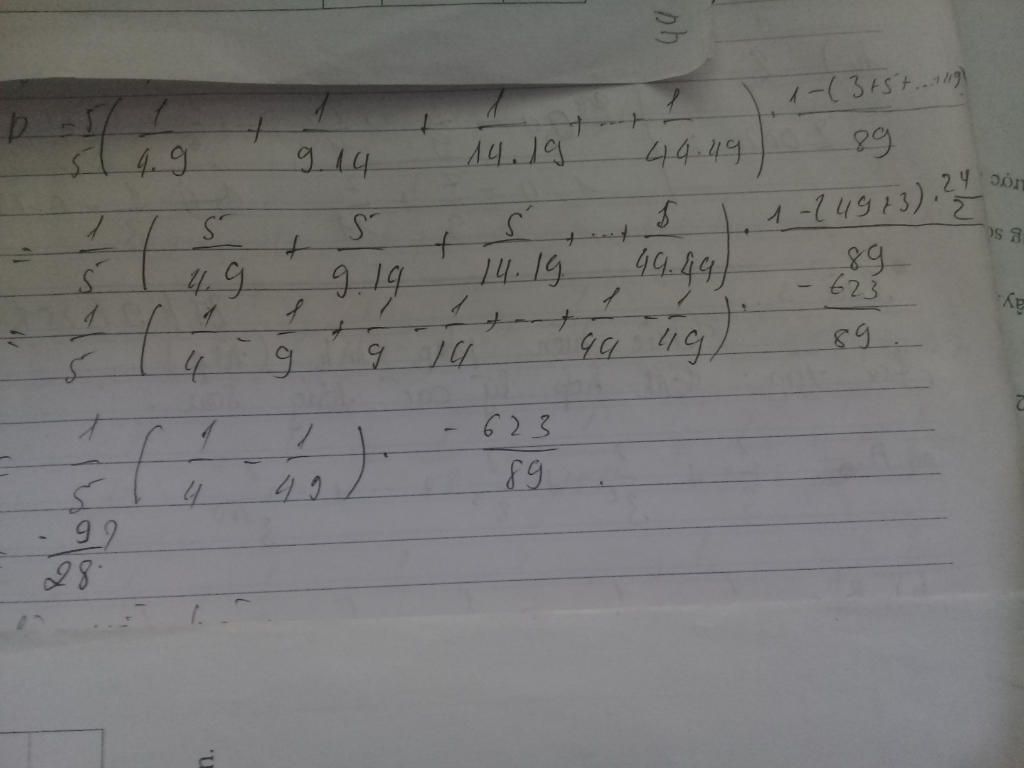 D = 5/5 ( 1/4.9 + 1/9.14 + 1/14.19 + ... + 1/44.49 ) . 1-(3+5+...+49)/89
= 1/5 ( 5/4.9 + 5/9.14 + 5/14.19 + ... + 5/44.49 ) . 1-(49+3).24/2/89
= 1/5 ( 1/4 - 1/9 + 1/9 - 1/14 + ... + 1/44 - 1/49 ) . -623/89.
= 1/5 ( 1/4 - 1/49 ) . -623/89.
= -9/28.